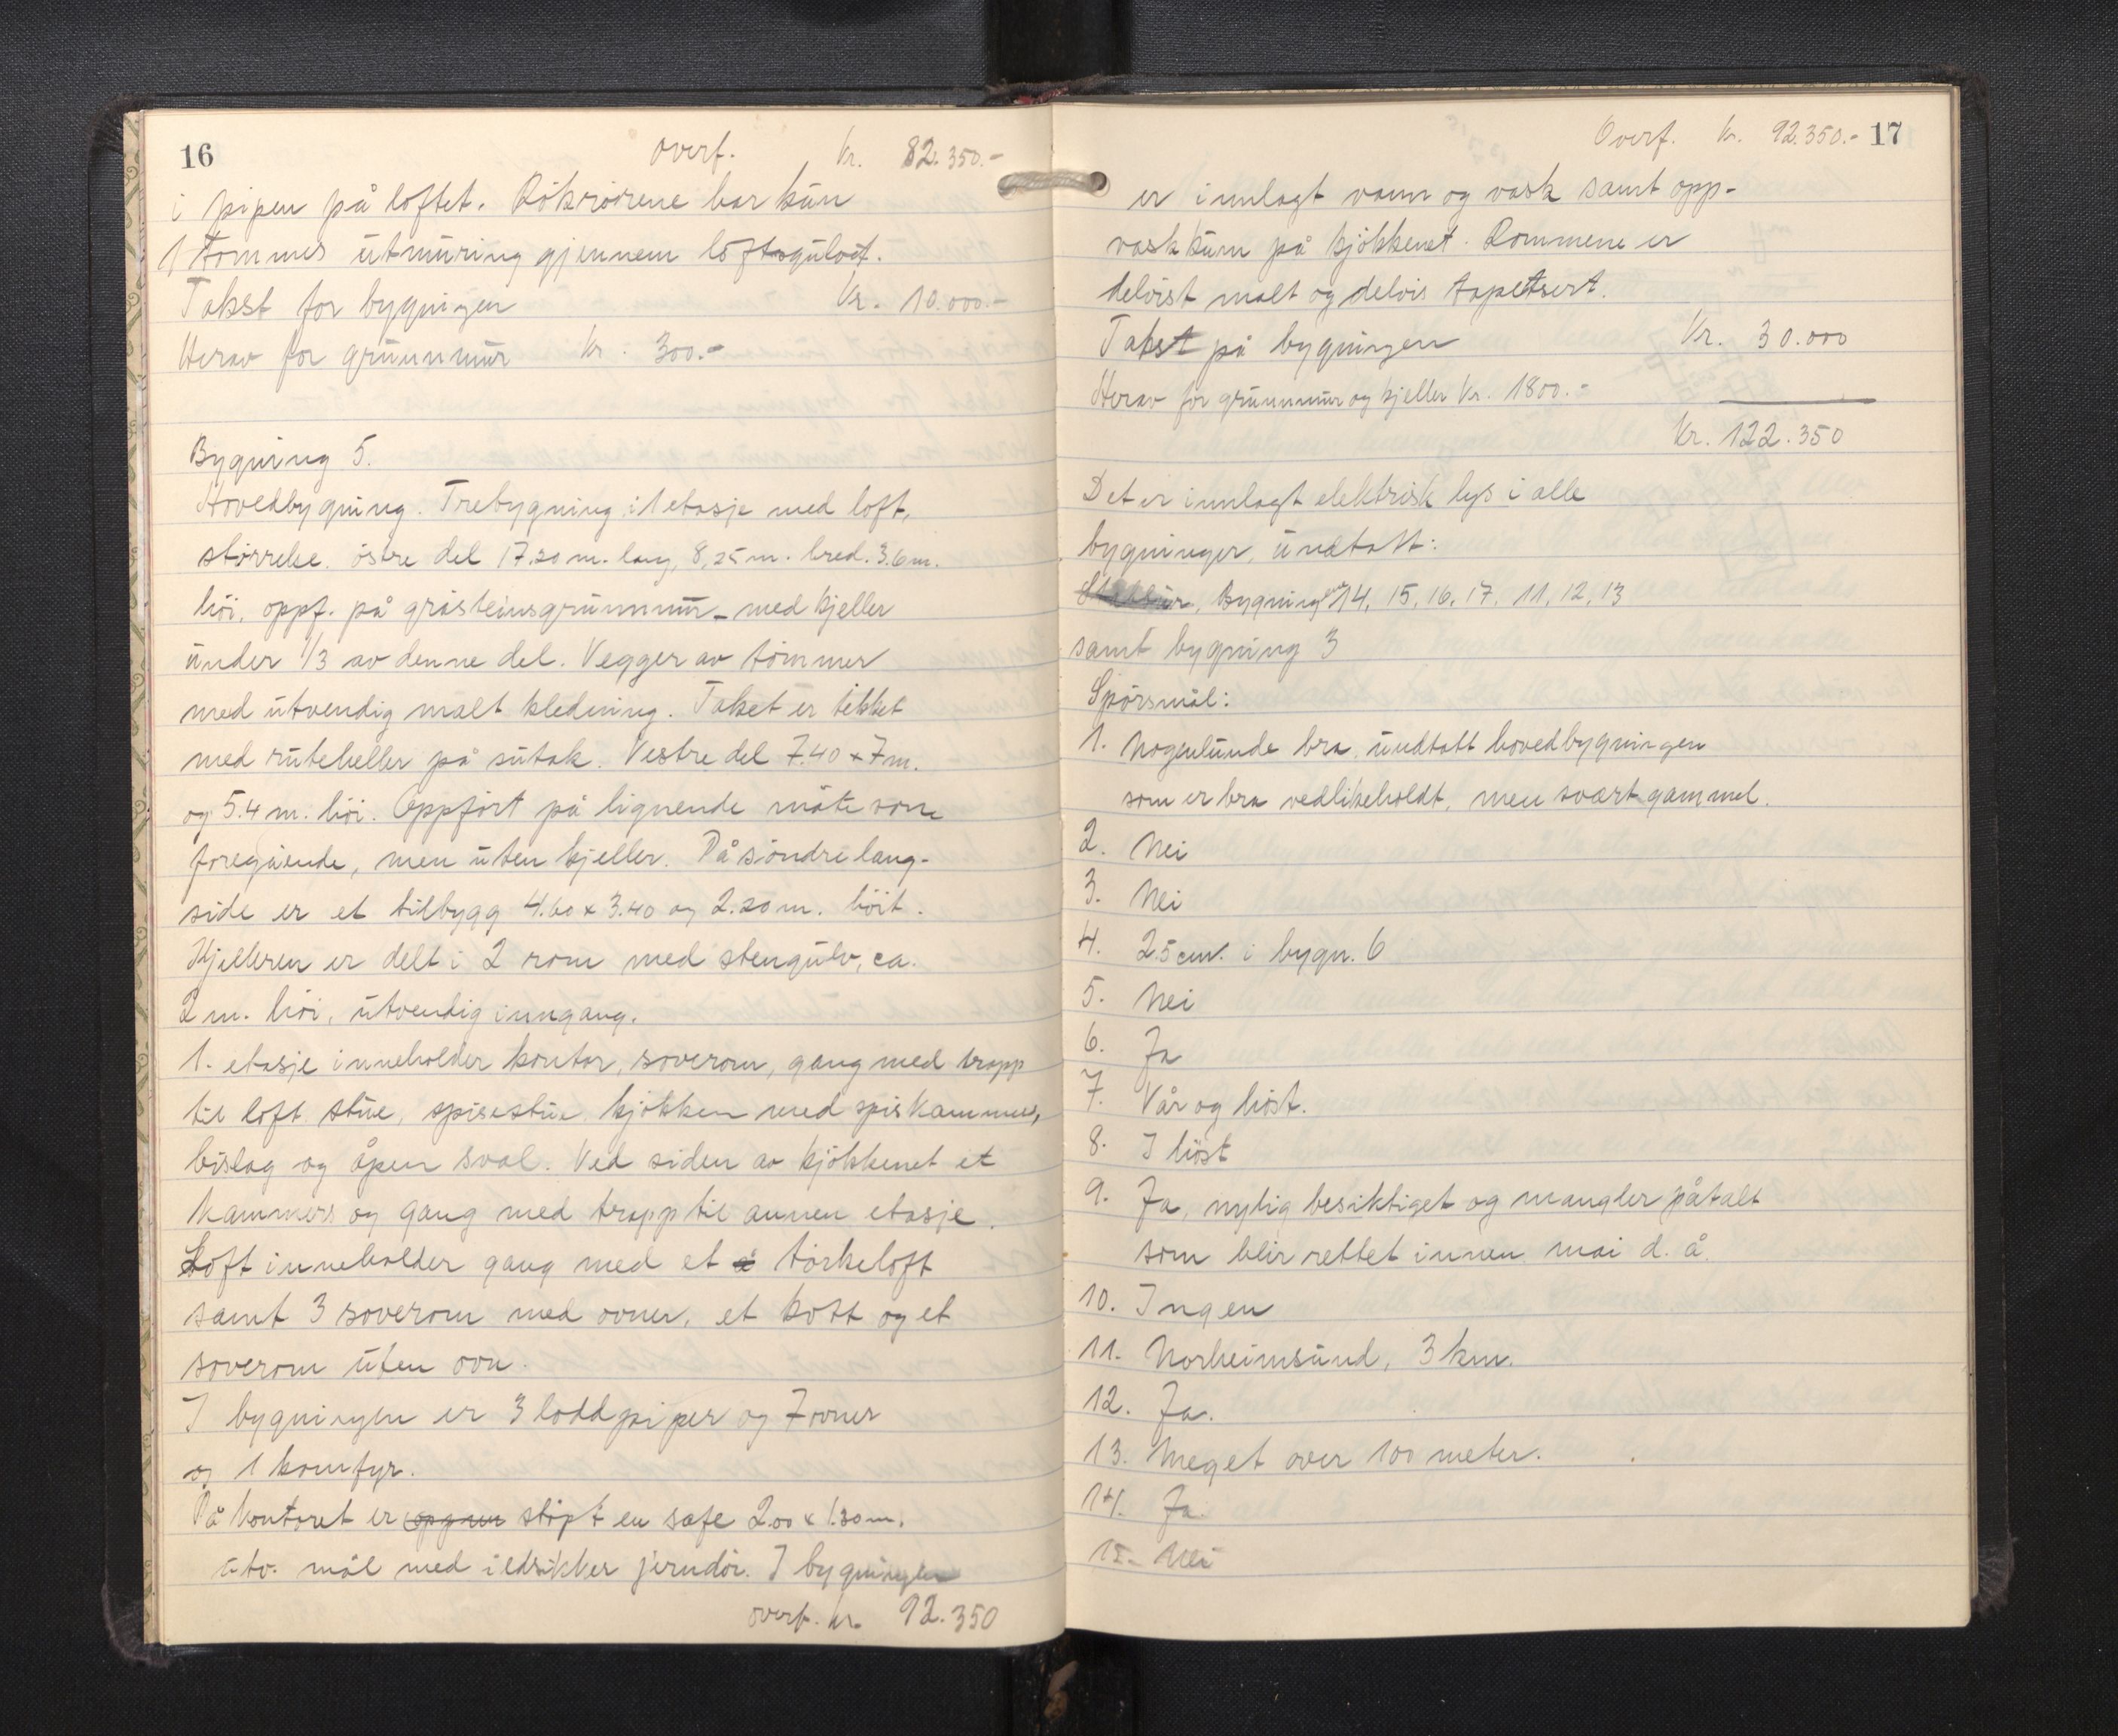 16
overf. Kr. 82.350.-
i pipen på loftet. Rökrörene har kun
1 tommes utmuring gjennem loftsgulvet.
Takst for bygningen Kr. 10.000.-
Herav for grunnmur Kr. 300.-
Bygning 5.
Hovedbygning. Trebygning i 1 etasje med loft,
störrelse. östre del 17.20 m. lang, 8,25 m. bred. 3.6 m.
höi, oppf. på gråsteinsgrunnmur med kjeller
under 1/3 av denne del. Vegger av tömmer
med utvendig malt kledning. Taket er tekket
med ruteheller på sutak. Vestre del 7.40 x 7 m.
og 5.4 m. höi. Oppfört på lignende måte som
foregående, men uten kjeller. På söndre lang-
side er et tilbygg 4.60 x 3.40 og 2.20 m. höit.
Kjelleren er delt i 2 rom med stengulv, ca.
2 m. höi, utvendig inngang.
1. etasje inneholder kontor, soverom, gang med trapp
til loft stue, spisestue kjökken med spiskammer,
bislag og åpen sval. Ved siden av kjökkenet et
kammers og gang med trapp til annen etasje.
Loft inneholder gang med et törkeloft
samt 3 soverom med ovner, et kott og et
soverom uten ovn.
I bygningen er 3 loddpiper og 7 ovner
og 1 komfyr.
På kontoret er stöpt en safe 2.00 x 1.30 m.
utv. mål med ildsikker jerndör. I bygningen
overf. kr. 92.350
Overf. Kr. 92.350.- 17
er innlagt vann og vask samt opp-
vaskkum på kjökkenet. Rommene er
delvist malt og delvis tapetsert.
Takst på bygningen Kr. 30.000
Herav for grunnmur og kjeller Kr. 1800.-
Kr. 122.350
Det er innlagt elektrisk lys i alle
bygninger, undtatt:
Bygning 14, 15, 16, 17. 11, 12, 13
samt bygning 3
Spörsmål:
1. Nogenlunde bra, undtatt hovedbygningen
som er bra vedlikeholdt, men svært gammel.
2. Nei
3. Nei
4. 25 cm. i bygn. 6
5. Nei
6. Ja
7. Vår og höst.
8. I höst
9. Ja, nylig besiktiget og mangler påtalt
som blir rettet innen mai d. å.
10. Ingen
11. Norheimsund, 3 km.
12. Ja.
13. Meget over 100 meter.
14. Ja.
15. Nei